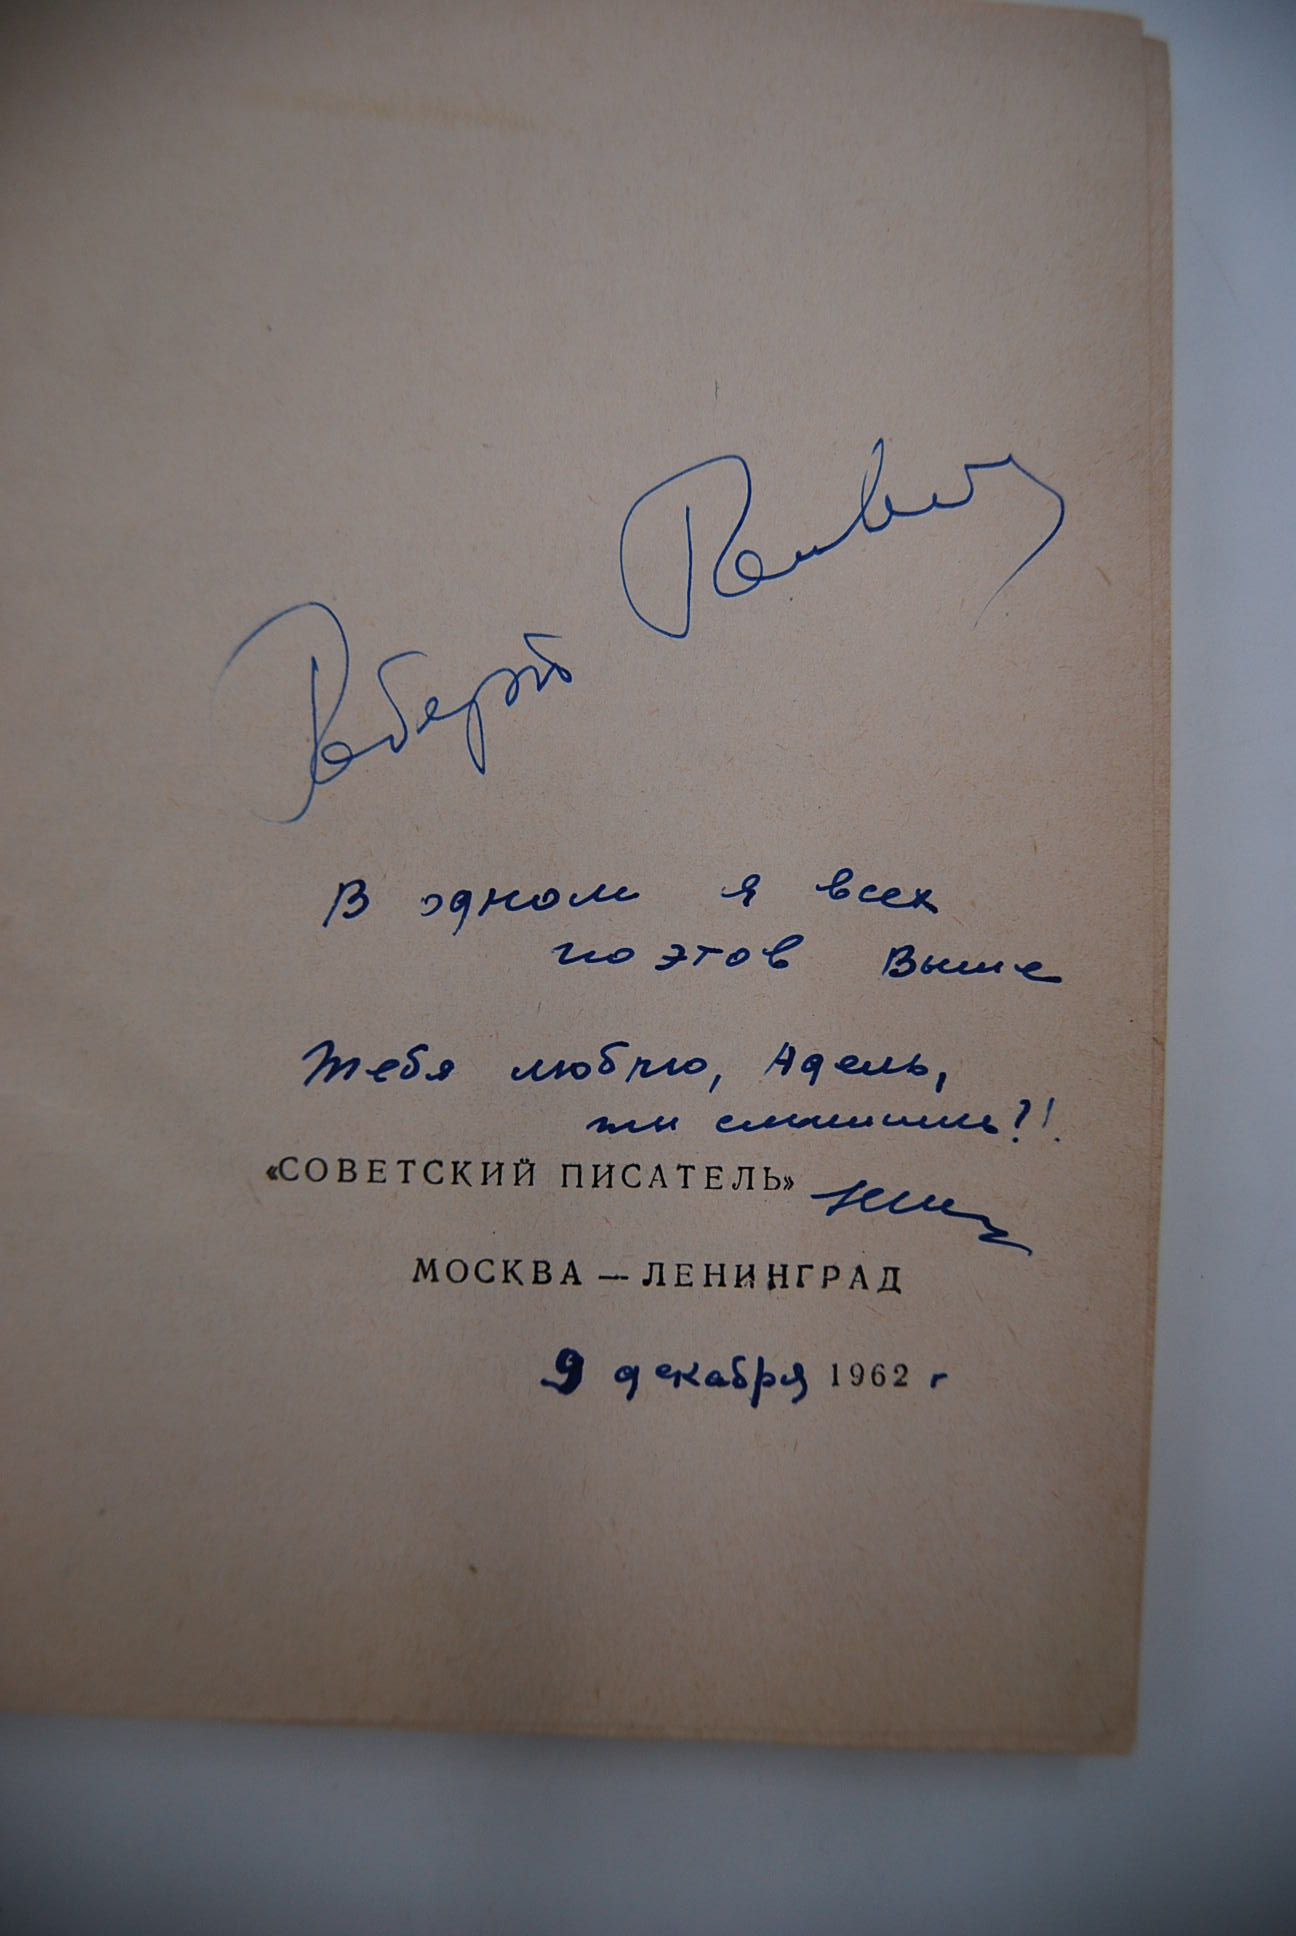 Роберт
В одном я всех
поэтов выше
Тебя люблю, Адель,
ты слышишь?!
«СОВЕТСКИЙ ПИСАТЕЛЬ»
МОСКВА — ЛЕНИНГРАД
9 декабря 1962 г